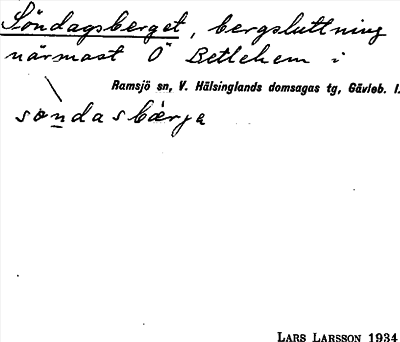 Söndagsberget, bergsluttning
närmast Ö Betlehem i
Ramsjö sn, V. Hälsinglands domsagas tg, Gävleb. l.
sön̲dasbærja
LARS LARSSON 1934